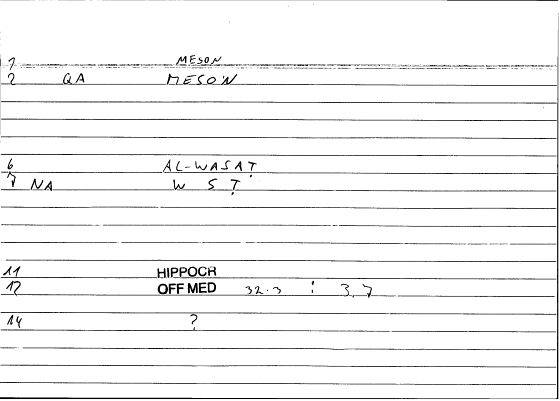 1 MESON
2 QA MESON
6 AL-WASAṬ
7 NA W S Ṭ
11 HIPPOCR
12 OFF MED 32.3 : 3,7
14 ?